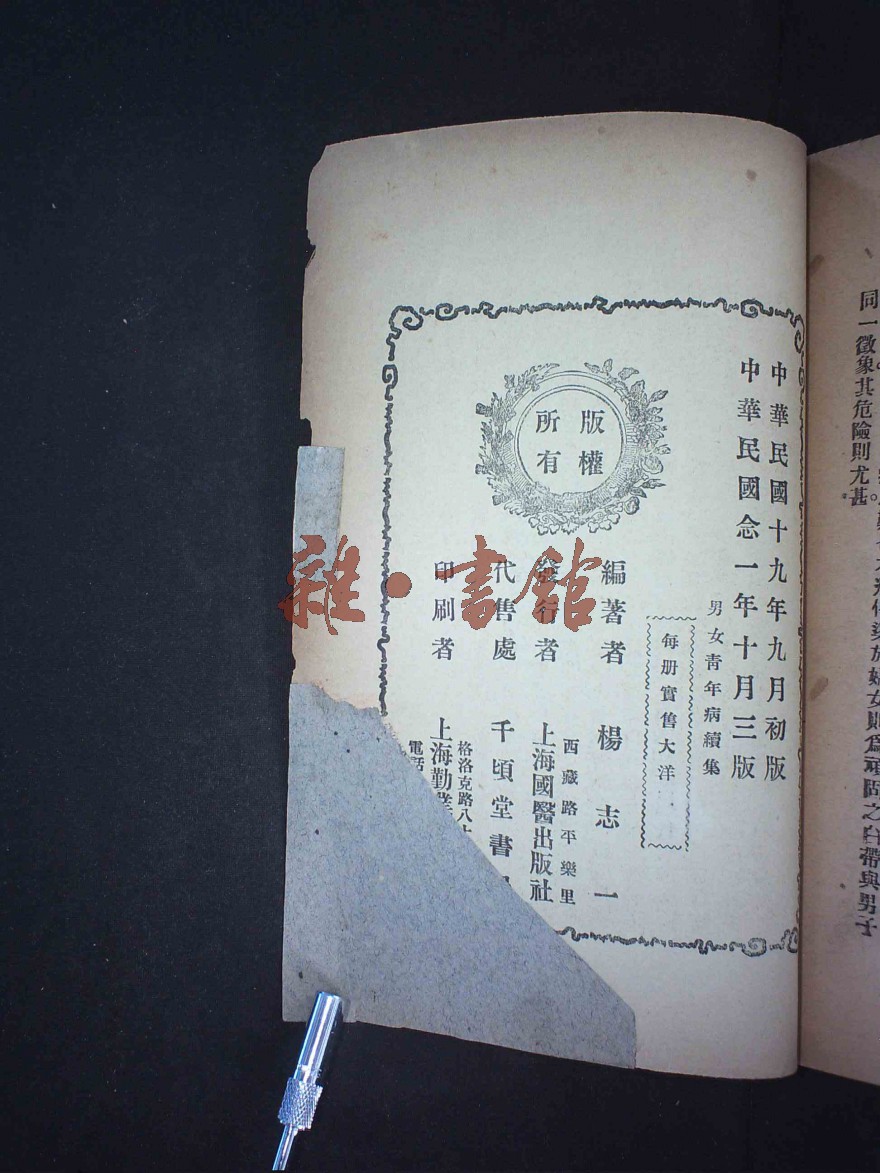 中華民國十九年九月初版
中華民國念一年十月三版
男女靑年病續集
每册實售大洋
版權
所有
編著者 楊志一
西藏路平樂里
發行者 上海國醫出版社
代售處 千頃堂書
格洛克路八十
印刷者 上海勤業
電話
雜·書館
同一徵象其危險則尤甚。